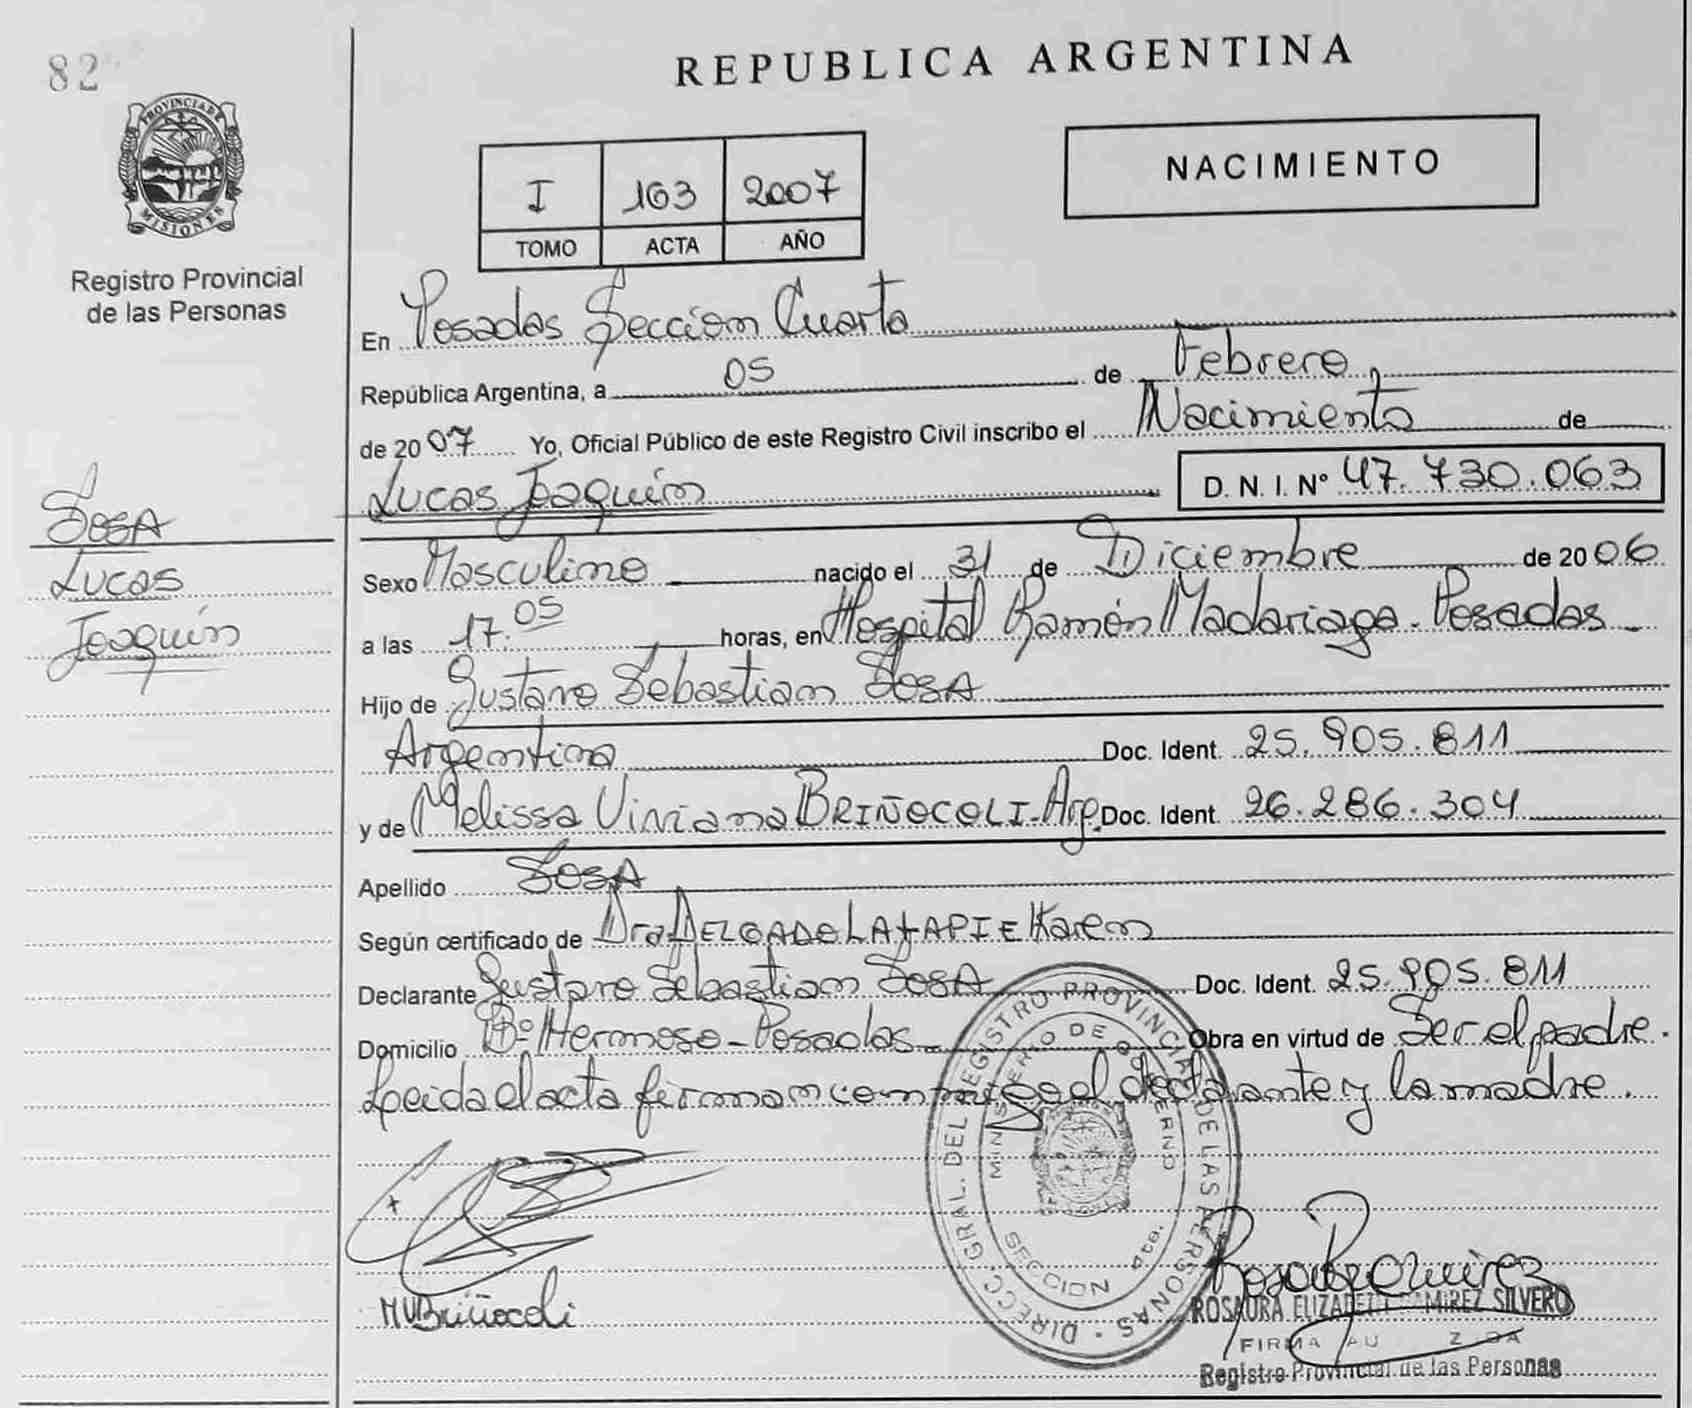 82
REPUBLICA ARGENTINA
PROVINCIA DE
MISIONES
Registro Provincial
de las Personas
NACIMIENTO
I 163 2007
TOMO ACTA AÑO
En Posadas Sección Cuarta
República Argentina, a 05 de Febrero
de 2007 Yo, Oficial Público de este Registro Civil inscribo el Nacimiento de
Lucas Joaquín D. N. I. Nº 47.730.063
SOSA
Lucas
Joaquín
Sexo Masculino nacido el 31 de Diciembre de 2006
a las 17.05 horas, en Hospital Ramón Madariaga - Posadas -
Hijo de Gustavo Sebastian SOSA
Argentina Doc. Ident. 25.905.811
y de Melissa Viviana BRIÑOCOLI - Arg. Doc. Ident. 26.286.304
Apellido SOSA
Según certificado de Dra DELGADO LATAPIE Karen
Declarante Gustavo Sebastian SOSA Doc. Ident. 25.905.811
Domicilio Bº Hermoso - Posadas - Obra en virtud de Ser el padre.
Leida el acta firman conmigo el declarante y la madre.
DIRECC. GRAL. DEL REGISTRO PROVINCIAL DE LAS PERSONAS
MINISTERIO DE GOBIERNO
SECCION 4ta.
MVBriñocoli
Rosaura Ramirez
ROSAURA ELIZABETH RAMIREZ SILVERO
FIRMA AU Z DA
Registro Provincial de las Personas